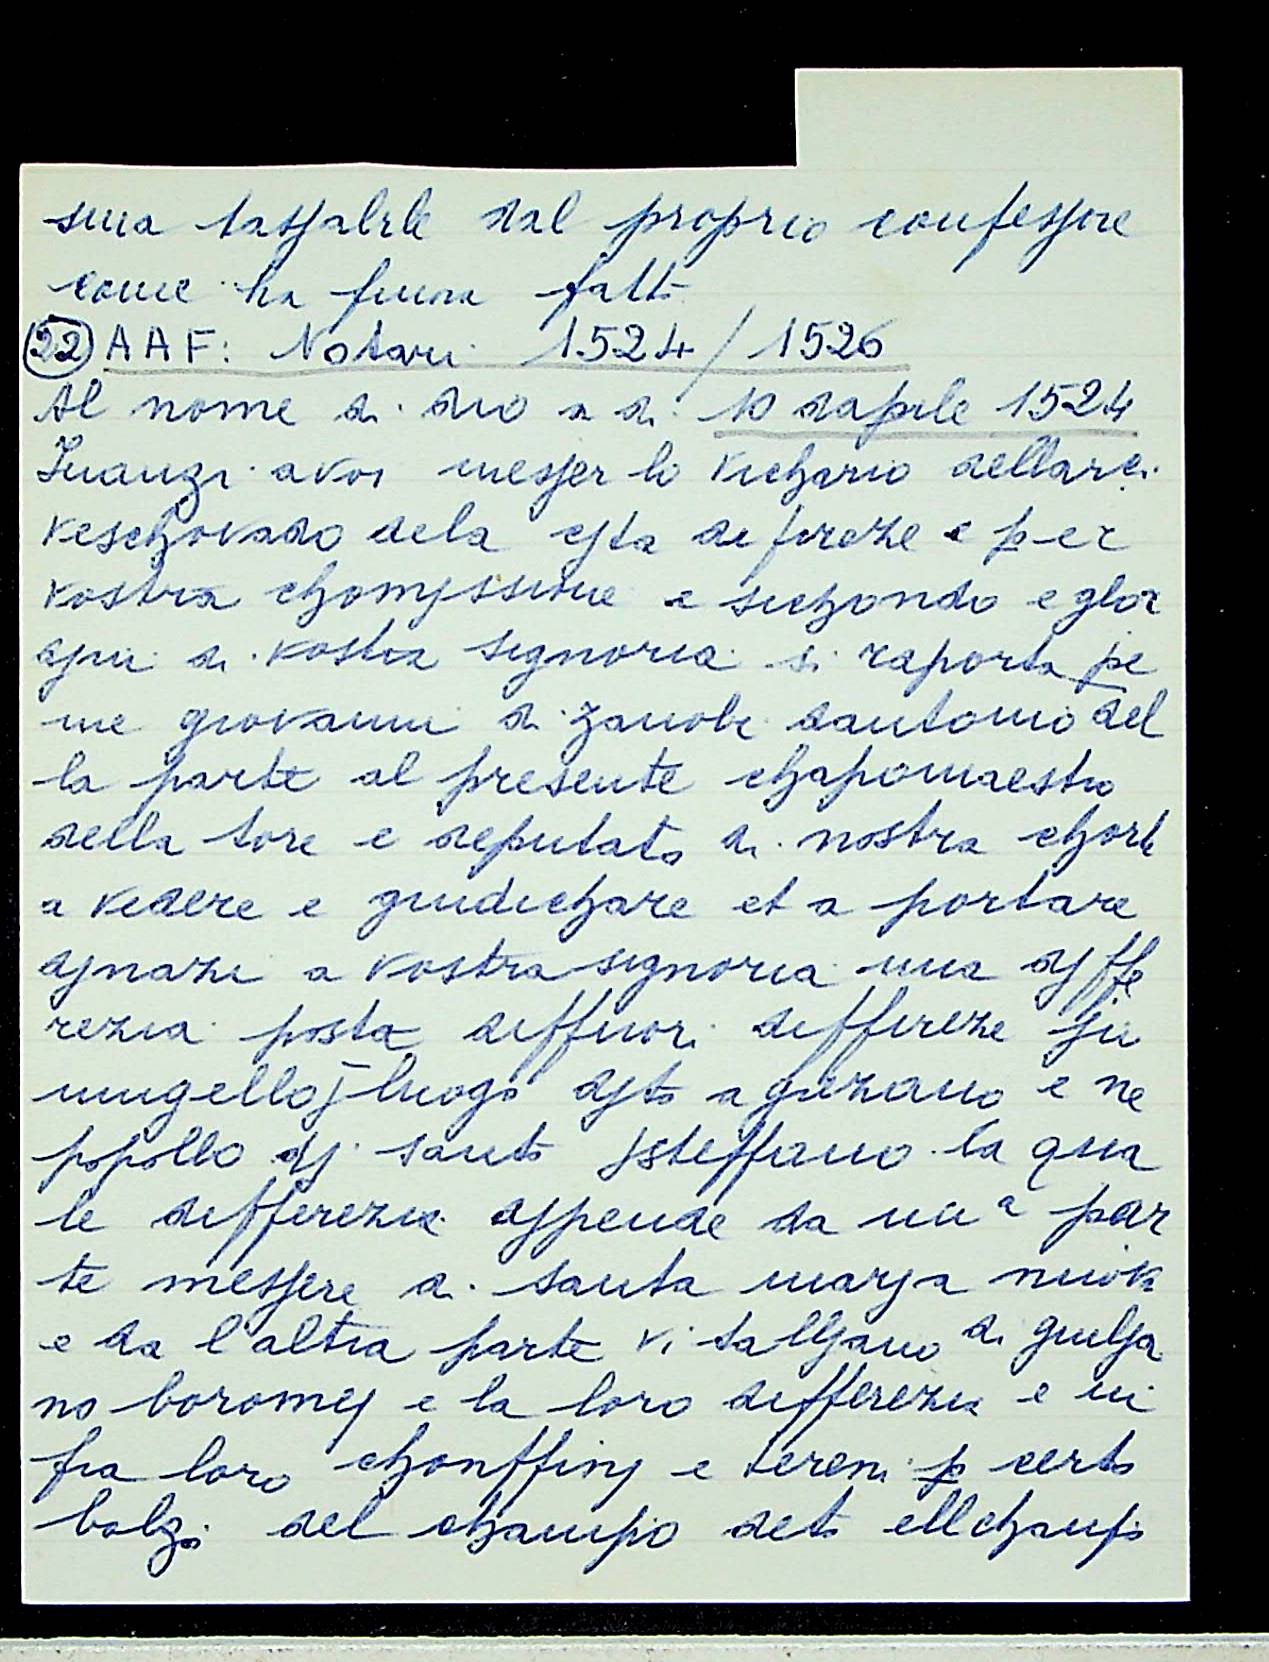 sua tassalele dal proprio confessore
come ha fuora fatto
(22) AAF: Notari 1524/1526
Al nome di dio a di 10 dapile 1524
Inanzi avoi messer lo vichario dellarci
veschovado dela cjta di fireze e per
vostra chomjssione e sichondo e glor
di vostra signoria si raporta pe
me giovanni di zanobi dantonio del
la parte al presente chapomaestro
della tore e deputato di nostra chorte
a vedere e giudichare et a portare
djnazi a vostra signoria una djffe
rezia posta diffuori diffireze jn
mugello j luogo djto a grezano e ne
popollo dj santo jsteffano la qua
le differezia djpende da una par
te messere di santa marja nuova
e da l'altra parte vitalljano di gulja
no boromej e la loro differezia e in
fra loro chonffinj e tereni p certo
balzo del champo deto ellchampo